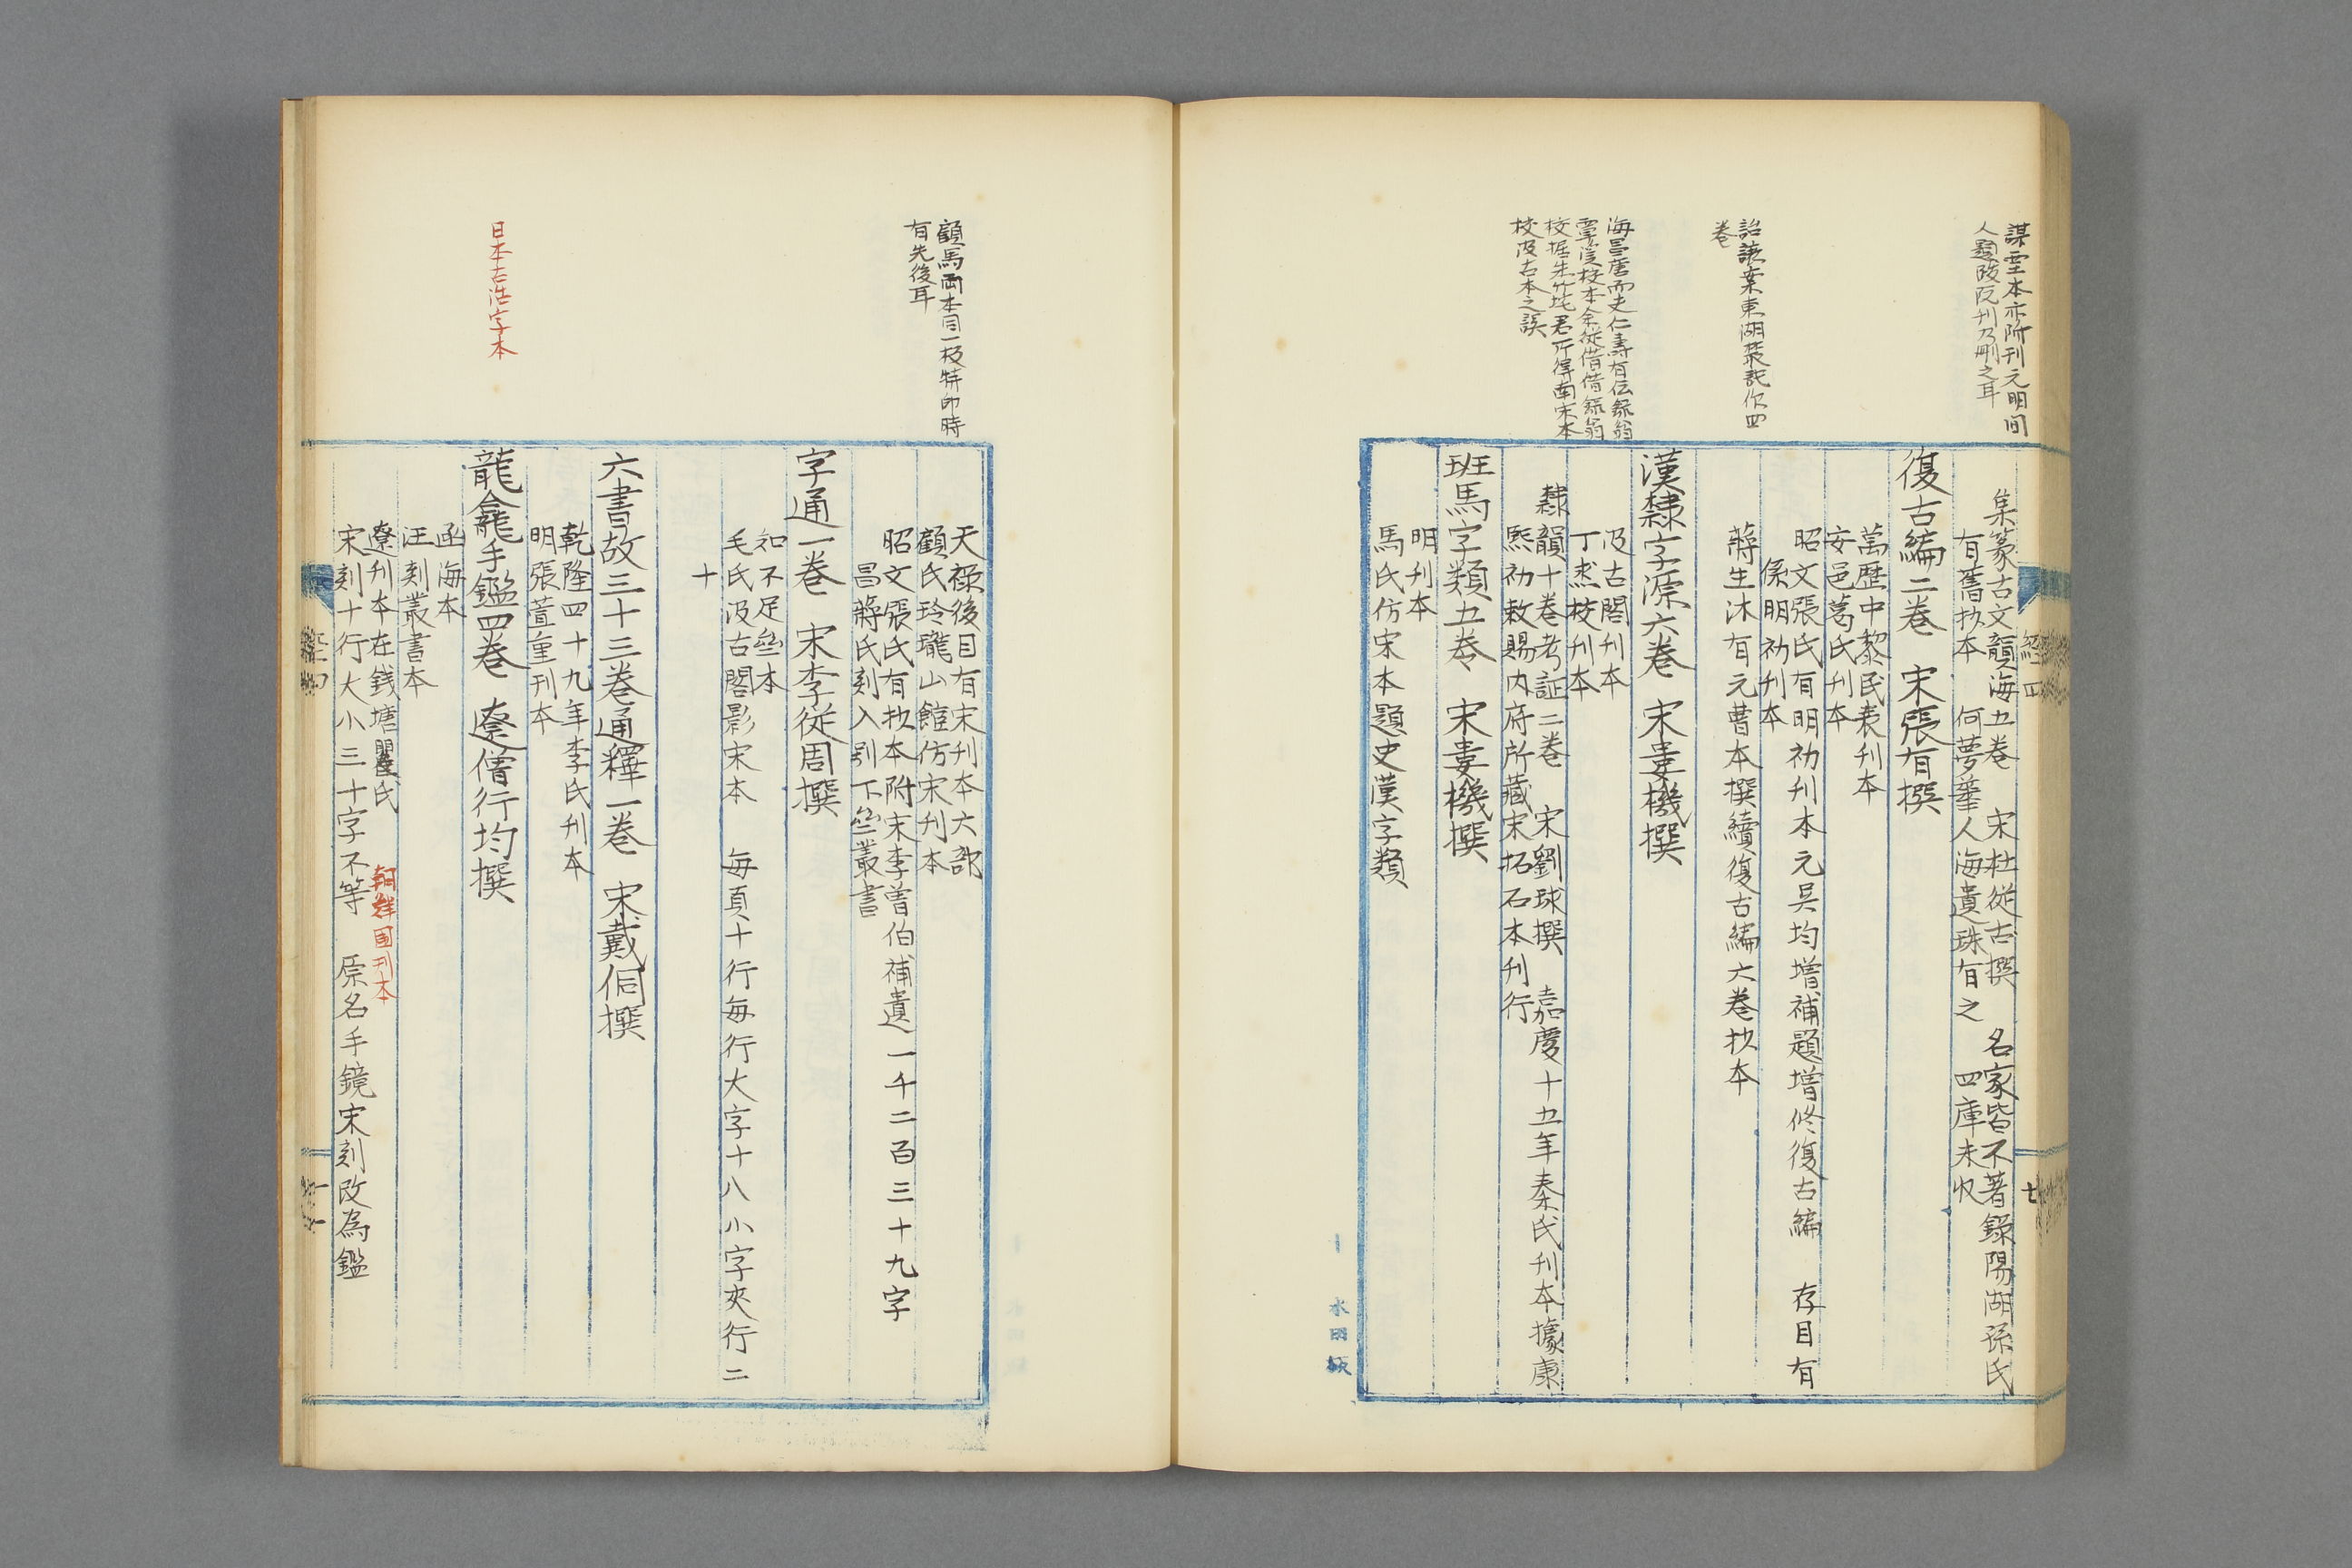 謀㙜本亦附刊元明間
人題跋阮刊乃刪之耳
集篆古文韻海五卷　宋杜從古撰　名家皆不著錄陽湖孫氏
有舊抄本　何夢華人海遺珠有之　四庫未收
復古編二卷　宋張有撰
萬歷中黎民表刊本
安邑葛氏刊本
昭文張氏有明初刊本元吳均增補題增修復古編　存目有
係明初刊本
詒讓案東湖叢記作四
卷
蔣生沐有元曹本撰續復古編六卷抄本
漢隸字源六卷　宋婁機撰
海昌唐
校本余從借
校據朱竹垞君所得南宋本
校汲古本之誤
汲古閣刊本
丁杰校刊本
隸韻十卷考証二卷　宋劉球撰　嘉慶十五年秦氏刊本據康
熙初敕賜內府所藏宋拓石本刊行
班馬字類五卷　宋婁機撰
明刊本
馬氏仿宋本題史漢字類
經四
七
顧馬兩本同一板特印時
有先後耳
天祿後目有宋刊本六部
顧氏玲瓏山館仿宋刊本
昭文張氏有抄本附宋李曾伯補遺一千二百三十九字
昌蔣氏刻入別下㘴叢書
字通一卷　宋李從周撰
知不足㘴本
毛氏汲古閣影宋本　每頁十行每行大字十八小字夾行二
十
六書故三十三卷通釋一卷　宋戴侗撰
乾隆四十九年李氏刊本
明張萱重刊本
日本古活字本
龍龕手鑑四卷　遼僧行均撰
函海本
汪刻叢書本
遼刊本在錢塘瞿氏　朝鮮国刊本
宋刻十行大小三十字不等　原名手鏡宋刻改為鑑